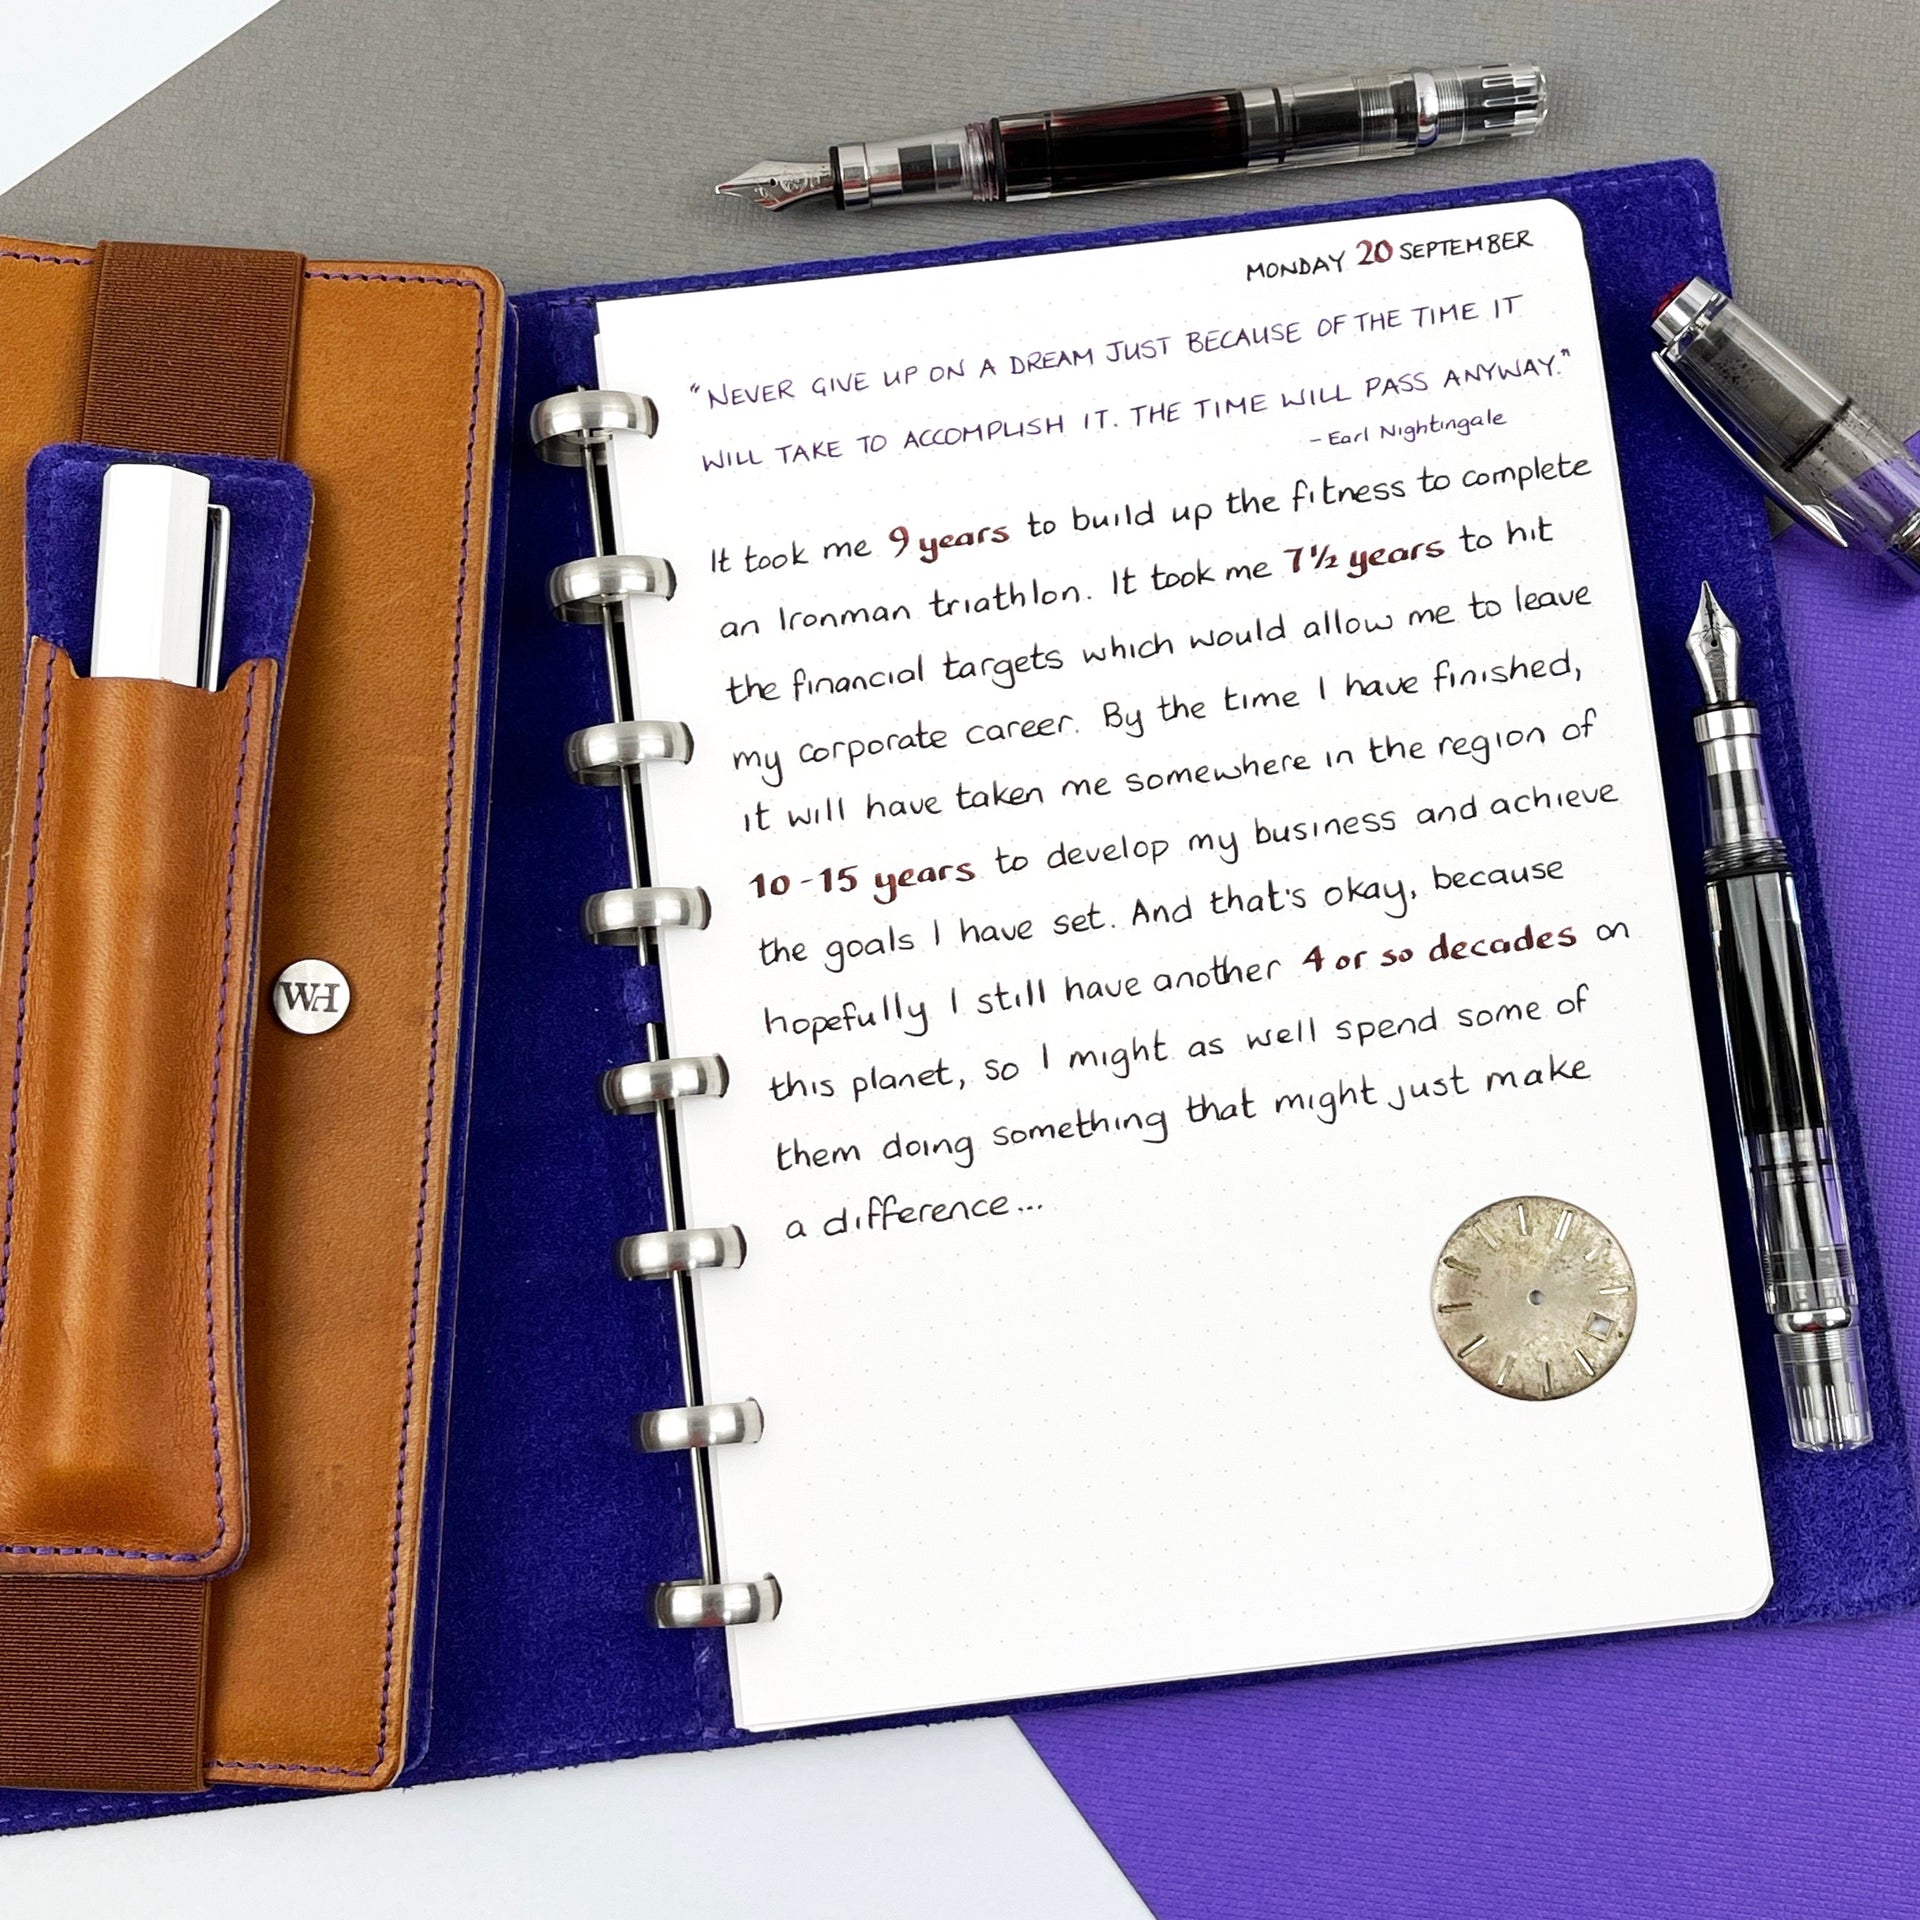 MONDAY 20 SEPTEMBER
"NEVER GIVE UP ON A DREAM JUST BECAUSE OF THE TIME IT
WILL TAKE TO ACCOMPLISH IT. THE TIME WILL PASS ANYWAY."
- Earl Nightingale
It took me 9 years to build up the fitness to complete
an Ironman triathlon. It took me 7½ years to hit
the financial targets which would allow me to leave
my corporate career. By the time I have finished,
it will have taken me somewhere in the region of
10-15 years to develop my business and achieve
the goals I have set. And that's okay, because
hopefully I still have another 4 or so decades on
this planet, so I might as well spend some of
them doing something that might just make
a difference...
WH